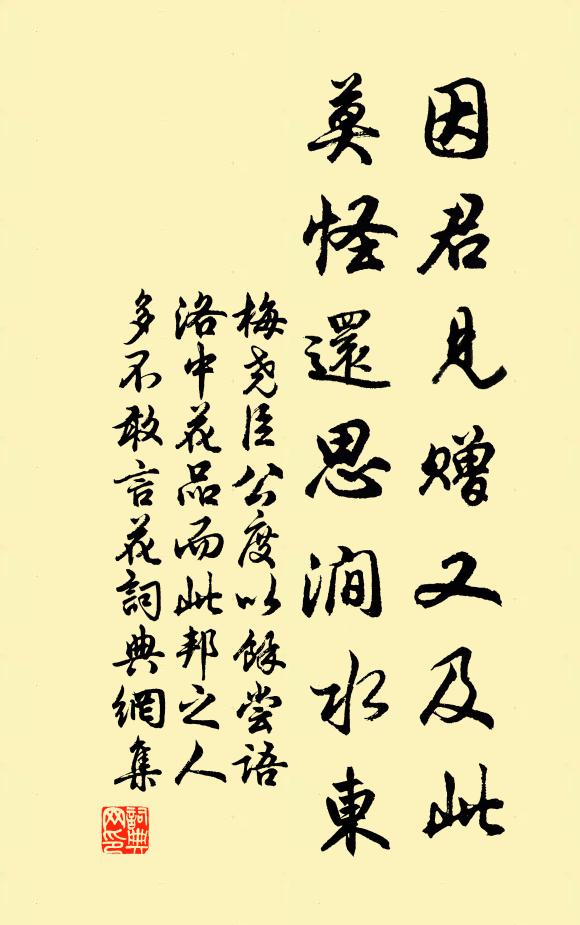 因君見贈又及此
莫怪還思澗水東
梅堯臣公度以餘嘗語
洛中花品而此邦之人
多不敢言花詞典網集
詞典网印